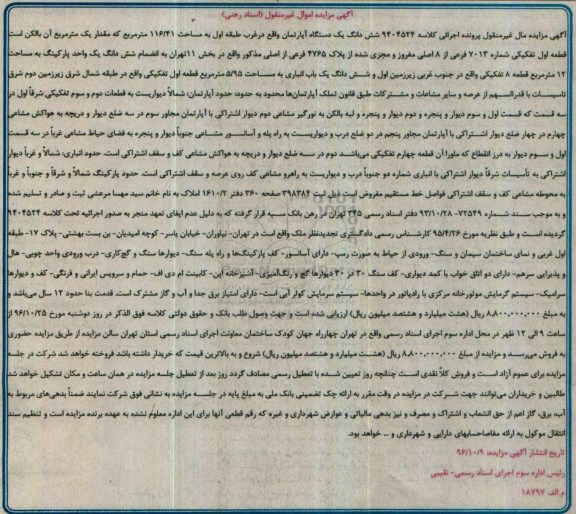 آگهی مزایده اموال غیرمنقول (اسناد رهنی)
آگهی مزایده مال غیرمنقول پرونده اجرائی کلاسه ۹۴۰۴۵۲۴ شش دانگ یک دستگاه آپارتمان واقع درغرب طبقه اول به مساحت ۱۱۶/۴۱ مترمربع که مقدار یک مترمربع آن بالکن است
قطعه اول تفکیکی شماره ۷۰۱۳ فرعی از ۸ اصلی مفروز و مجزی شده از پلاک ۴۷۶۵ فرعی از اصلی مذکور واقع در بخش ۱۱ تهران به انضمام شش دانگ یک واحد پارکینگ به مساحت
۱۲ مترمربع قطعه ۸ تفکیکی واقع در جنوب غربی زیرزمین اول و شش دانگ یک باب انباری به مساحت ۵/۹۵ مترمربع قطعه اول تفکیکی واقع در طبقه شمال شرق زیرزمین دوم شرق
تاسیسات با قدرالسهم از عرصه و سایر مشاعات و مشترکات طبق قانون تملک آپارتمان‌ها محدود به حدود: حدود آپارتمان: شمالاً دیواریست به قطعات دوم و سوم تفکیکی شرقاً اول در
سه قسمت که قسمت اول و سوم دیوار و پنجره و دوم دیوار و پنجره و لبه بالکن به نورگیر مشاعی دوم دیوار اشتراکی با آپارتمان مجاور سوم در سه ضلع دیوار و دریچه به هواکش مشاعی
چهارم در چهار ضلع دیوار اشتراکی با آپارتمان مجاور پنجم در دو ضلع درب و دیواریست به راه پله و آسانسور مشاعی جنوباً دیوار و پنجره به فضای حیاط مشاعی غرباً در سه قسمت
اول و سوم دیوار به درز انقطاع که ماورا آن قطعه چهارم تفکیکی می‌باشد دوم در سه ضلع دیوار و دریچه به هواکش مشاعی کف و سقف اشتراکی است. حدود انباری: شمالاً و غرباً دیوار
اشتراکی به تأسیسات شرقاً دیوار اشتراکی با انباری شماره دو جنوباً درب و دیواریست به راهرو مشاعی کف روی عرصه و سقف اشتراکی است. حدود پارکینگ شمالاً و شرقاً و جنوباً و غرباً
به محوطه مشاعی کف و سقف اشتراکی فواصل خط مستقیم مفروض است ذیل ثبت ۳۹۸۳۸۴ صفحه ۳۶۰ دفتر ۱۶۱۰/۲ املاک به نام خانم سید مهسا مرعشی ثبت و صادر و تسلیم شده
و به موجب سند شماره ۷۲۵۴۹- ۹۳/۱۰/۲۸ دفتر اسناد رسمی ۳۴۵ تهران در رهن بانک سپه قرار گرفته که به دلیل عدم ایفای تعهد منجر به صدور اجرائیه تحت کلاسه ۹۴۰۴۵۲۴
گردیده است و طبق نظریه مورخ ۹۵/۴/۲۶ کارشناس رسمی دادگستری تجدیدنظر ملک واقع است در تهران- نیاوران- خیابان یاسر- کوچه امیدیان- بن بست بهشتی- پلاک ۱۷- طبقه
اول غربی و نمای ساختمان سیمان و سنگ- ورودی از حیاط به صورت رمپ- دارای آسانسور- کف پارکینگ‌ها و راه پله سنگ- دیوارها سنگ و گچ‌کاری- درب ورودی واحد چوبی- هال
و پذیرایی سرهم- دارای دو اتاق خواب با کمد دیواری- کف سنگ ۳۰ در ۳۰ دیوارها گچ و رنگ‌آمیزی- آشپزخانه اپن- کابینت ام دی اف- حمام و سرویس ایرانی و فرنگی- کف و دیوارها
سرامیک- سیستم گرمایش موتورخانه مرکزی با رادیاتور در واحدها- سیستم سرمایش کولر آبی است- دارای امتیاز برق جدا و آب و گاز مشترک است. قدمت بنا حدود ۱۲ سال می‌باشد و
به مبلغ ۸،۸۰۰،۰۰۰،۰۰۰ ریال (هشت میلیارد و هشتصد میلیون ریال) ارزیابی شده است و جهت وصول طلب بانک و حقوق دولتی کلاسه فوق الذکر در روز دوشنبه مورخ ۹۶/۱۰/۲۵ از
ساعت ۹ الی ۱۲ ظهر در محل اداره سوم اجرای اسناد رسمی واقع در تهران چهارراه جهان کودک ساختمان معاونت اجرای اسناد رسمی استان تهران سالن مزایده از طریق مزایده حضوری
به فروش می‌رسد و مزایده از مبلغ ۸،۸۰۰،۰۰۰،۰۰۰ ریال (هشت میلیارد و هشتصد میلیون ریال) شروع و به بالاترین قیمت که خریدار داشته باشد فروخته خواهد شد شرکت در جلسه
مزایده برای عموم آزاد است و فروش کلاً نقدی است چنانچه روز تعیین شده با تعطیل رسمی مصادف گردد روز بعد از تعطیل جلسه مزایده در همان ساعت و مکان تشکیل خواهد شد
طالبین و خریداران می‌توانند جهت شرکت در مزایده در وقت مقرر به ارائه چک تضمینی بانک ملی به مبلغ پایه در جلسه مزایده به نشانی فوق شرکت نمایند ضمناً بدهی‌های مربوط به
آب، برق، گاز اعم از حق انشعاب و اشتراک و مصرف و نیز بدهی مالیاتی و عوارض شهرداری و غیره که رقم قطعی آنها برای این اداره معلوم نشده به عهده برنده مزایده است و تنظیم سند
انتقال موکول به ارائه مفاصاحسابهای دارایی و شهرداری و ... خواهد بود.
تاریخ انتشار آگهی مزایده: ۹۶/۱۰/۹
رئیس اداره سوم اجرای اسناد رسمی- نقیبی
م الف ۱۸۷۹۷